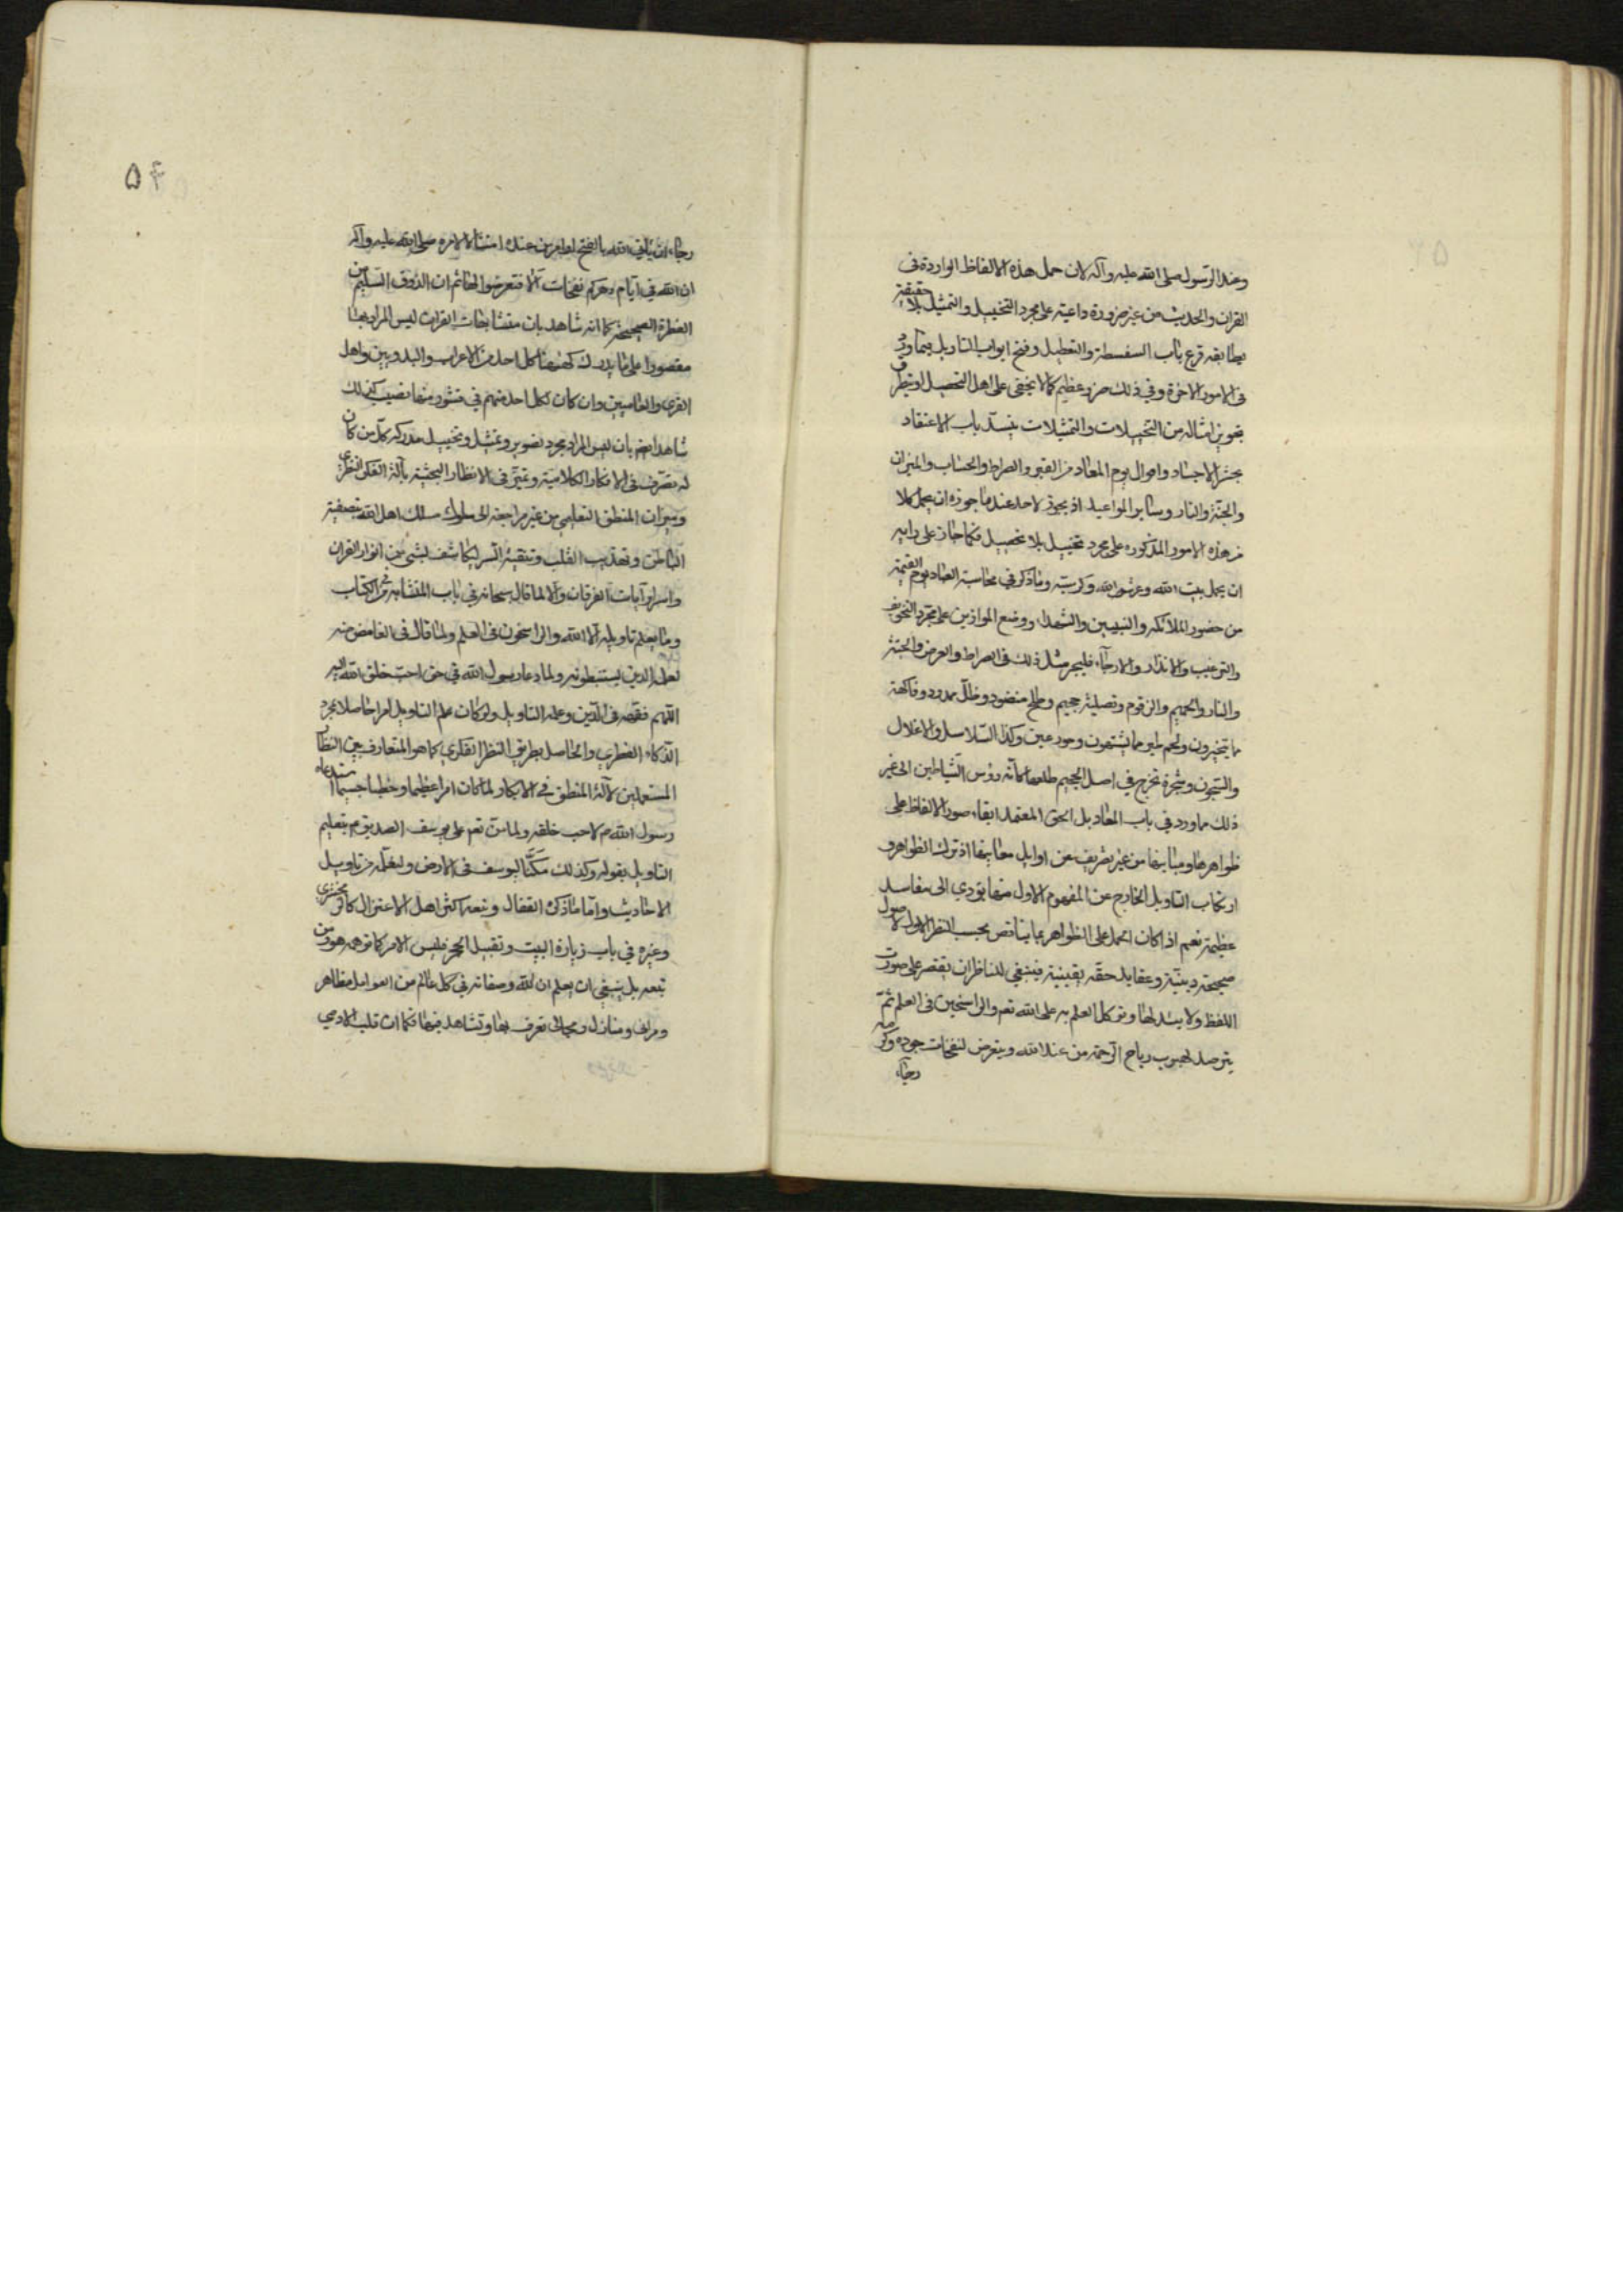 وعند الرسول صلى الله عليه وآله لان حمل هذه الالفاظ الواردة فى
القران والحديث من غير ضرورة داعية على مجرد التخييل والتمثيل بلا حقيقة
يطابقه قرع باب السفسطة والتعطيل وفتح ابواب التاويل فيما ورد
فى الامور الاخرة وفي ذلك ضرر عظيم كما لا يخفى على اهل التحصيل اذ بتطرق
تجويز امثاله من التخييلات والتمثيلات ينسد باب الاعتقاد
بحشر الاجساد واحوال يوم المعاد من القبر والصراط والحساب والميزان
والجنة والنار وسائر المواعيد اذ يجوز لاحد عند ما جوزه ان يحمل كلا
من هذه الامور المذكوره على مجرد تخييل بلا تحصيل فكما جاز على رايه
ان يحمل بيت الله وعرش الله وكرسيه وما ذكر في محاسبة العباد يوم القيمة
من حضور الملائكه والنبيين والشهداء ووضع الموازين على مجرد التخويف
والترغيب والانذار والارجاء فليجر مثل ذلك فى الصراط والعرض والجنة
والنار والحميم والزقوم وتصلية جحيم وطلح منضود وظل ممدود وفاكهة
مما يتخيرون ولحم طير مما يشتهون وحور عين وكذا السلاسل والاغلال
والسجون وشجرة تخرج في اصل الجحيم طلعها كانه رؤس الشياطين الى غير
ذلك مما ورد في باب المعاد بل الحق المعتمد ابقاء صور الالفاظ على
ظواهرها ومبانيها من غير تصريف عن اوايل معانيها اذ ترك الظواهر و
ارتكاب التاويل الخارج عن المفهوم الاول منها يؤدي الى مفاسد
عظيمة نعم اذا كان الحمل على الظواهر مما يناقض بحسب النظر الاول لاصول
صحيحة دينية وعقايد حقه يقينية فينبغي للناظر ان يقتصر على صورت
اللفظ ولا يبدلها ويوكل العلم به على الله تعم والراسخين فى العلم ثم
يترصد لهبوب رياح الرحمة من عند الله ويتعرض لنفحات جوده وكرمه
رجاء
۵۴
رجاء ان ياتي الله بالفتح او امر من عنده امتثالا لامره صلى الله عليه وآله
ان لله في ايام دهركم نفحات الا فتعرضوا لها ثم ان الذوق السليم من
الفطرة الصحيحة كما انه شاهد بان متشابهات القران ليس المراد بها
مقصورا على ما يدرك كنهها كل احد من الاعراب والبدويين واهل
القرى والعاميين وان كان لكل احد منهم في قشور منها نصيب كذلك
شاهد ايضا بان ليس المراد مجرد تصوير وتمثيل وتخييل مدركه كل من كان
له تصرف فى الافكار الكلامية وتميز فى الانظار البحثية بآلة الفكر النظري
وميزان المنطق التعليمي من غير مراجعة الى سلوك مسلك اهل الله بتصفية
الباطن وتهذيب القلب وتنقية السر لتكاشف بشى من انوار القران
واسرار آيات الفرقان والا لما قال سبحانه في باب المتشابه من الكتاب
وما يعلم تاويله الا الله والراسخون فى العلم ولما قال فى الغامض منه
لعلمه الذين يستنبطونه ولما دعا رسول الله في حق احب خلق الله اليه
اللهم فقهه فى الدين وعلمه التاويل ولو كان علم التاويل امرا حاصلا بمجرد
الذكاء الفطري والحاصل بطريق النظر الفكري كما هو المتعارف بين النظار
المستعملين لآلة المنطق في الافكار لما كان امرا عظيما وخطبا جسيما استدعاه
رسول الله م لاحب خلقه ولما من تعم على يوسف الصديق م بتعليم
التاويل بقوله وكذلك مكنا ليوسف فى الارض ولنعلمه من تاويل
الاحاديث واما ما ذكره القفال وتبعه اكثر اهل الاعتزال كالزمخشري
وغيره في باب زيارة البيت وتقبيل الحجر فليس الامر كما توهمه هو ومن
تبعه بل ينبغي ان يعلم ان لله وصفاته في كل عالم من العوالم مظاهر
ومرائي ومنازل ومجالى تعرف بها وتشاهد فيها فكما ان قلب الادمي